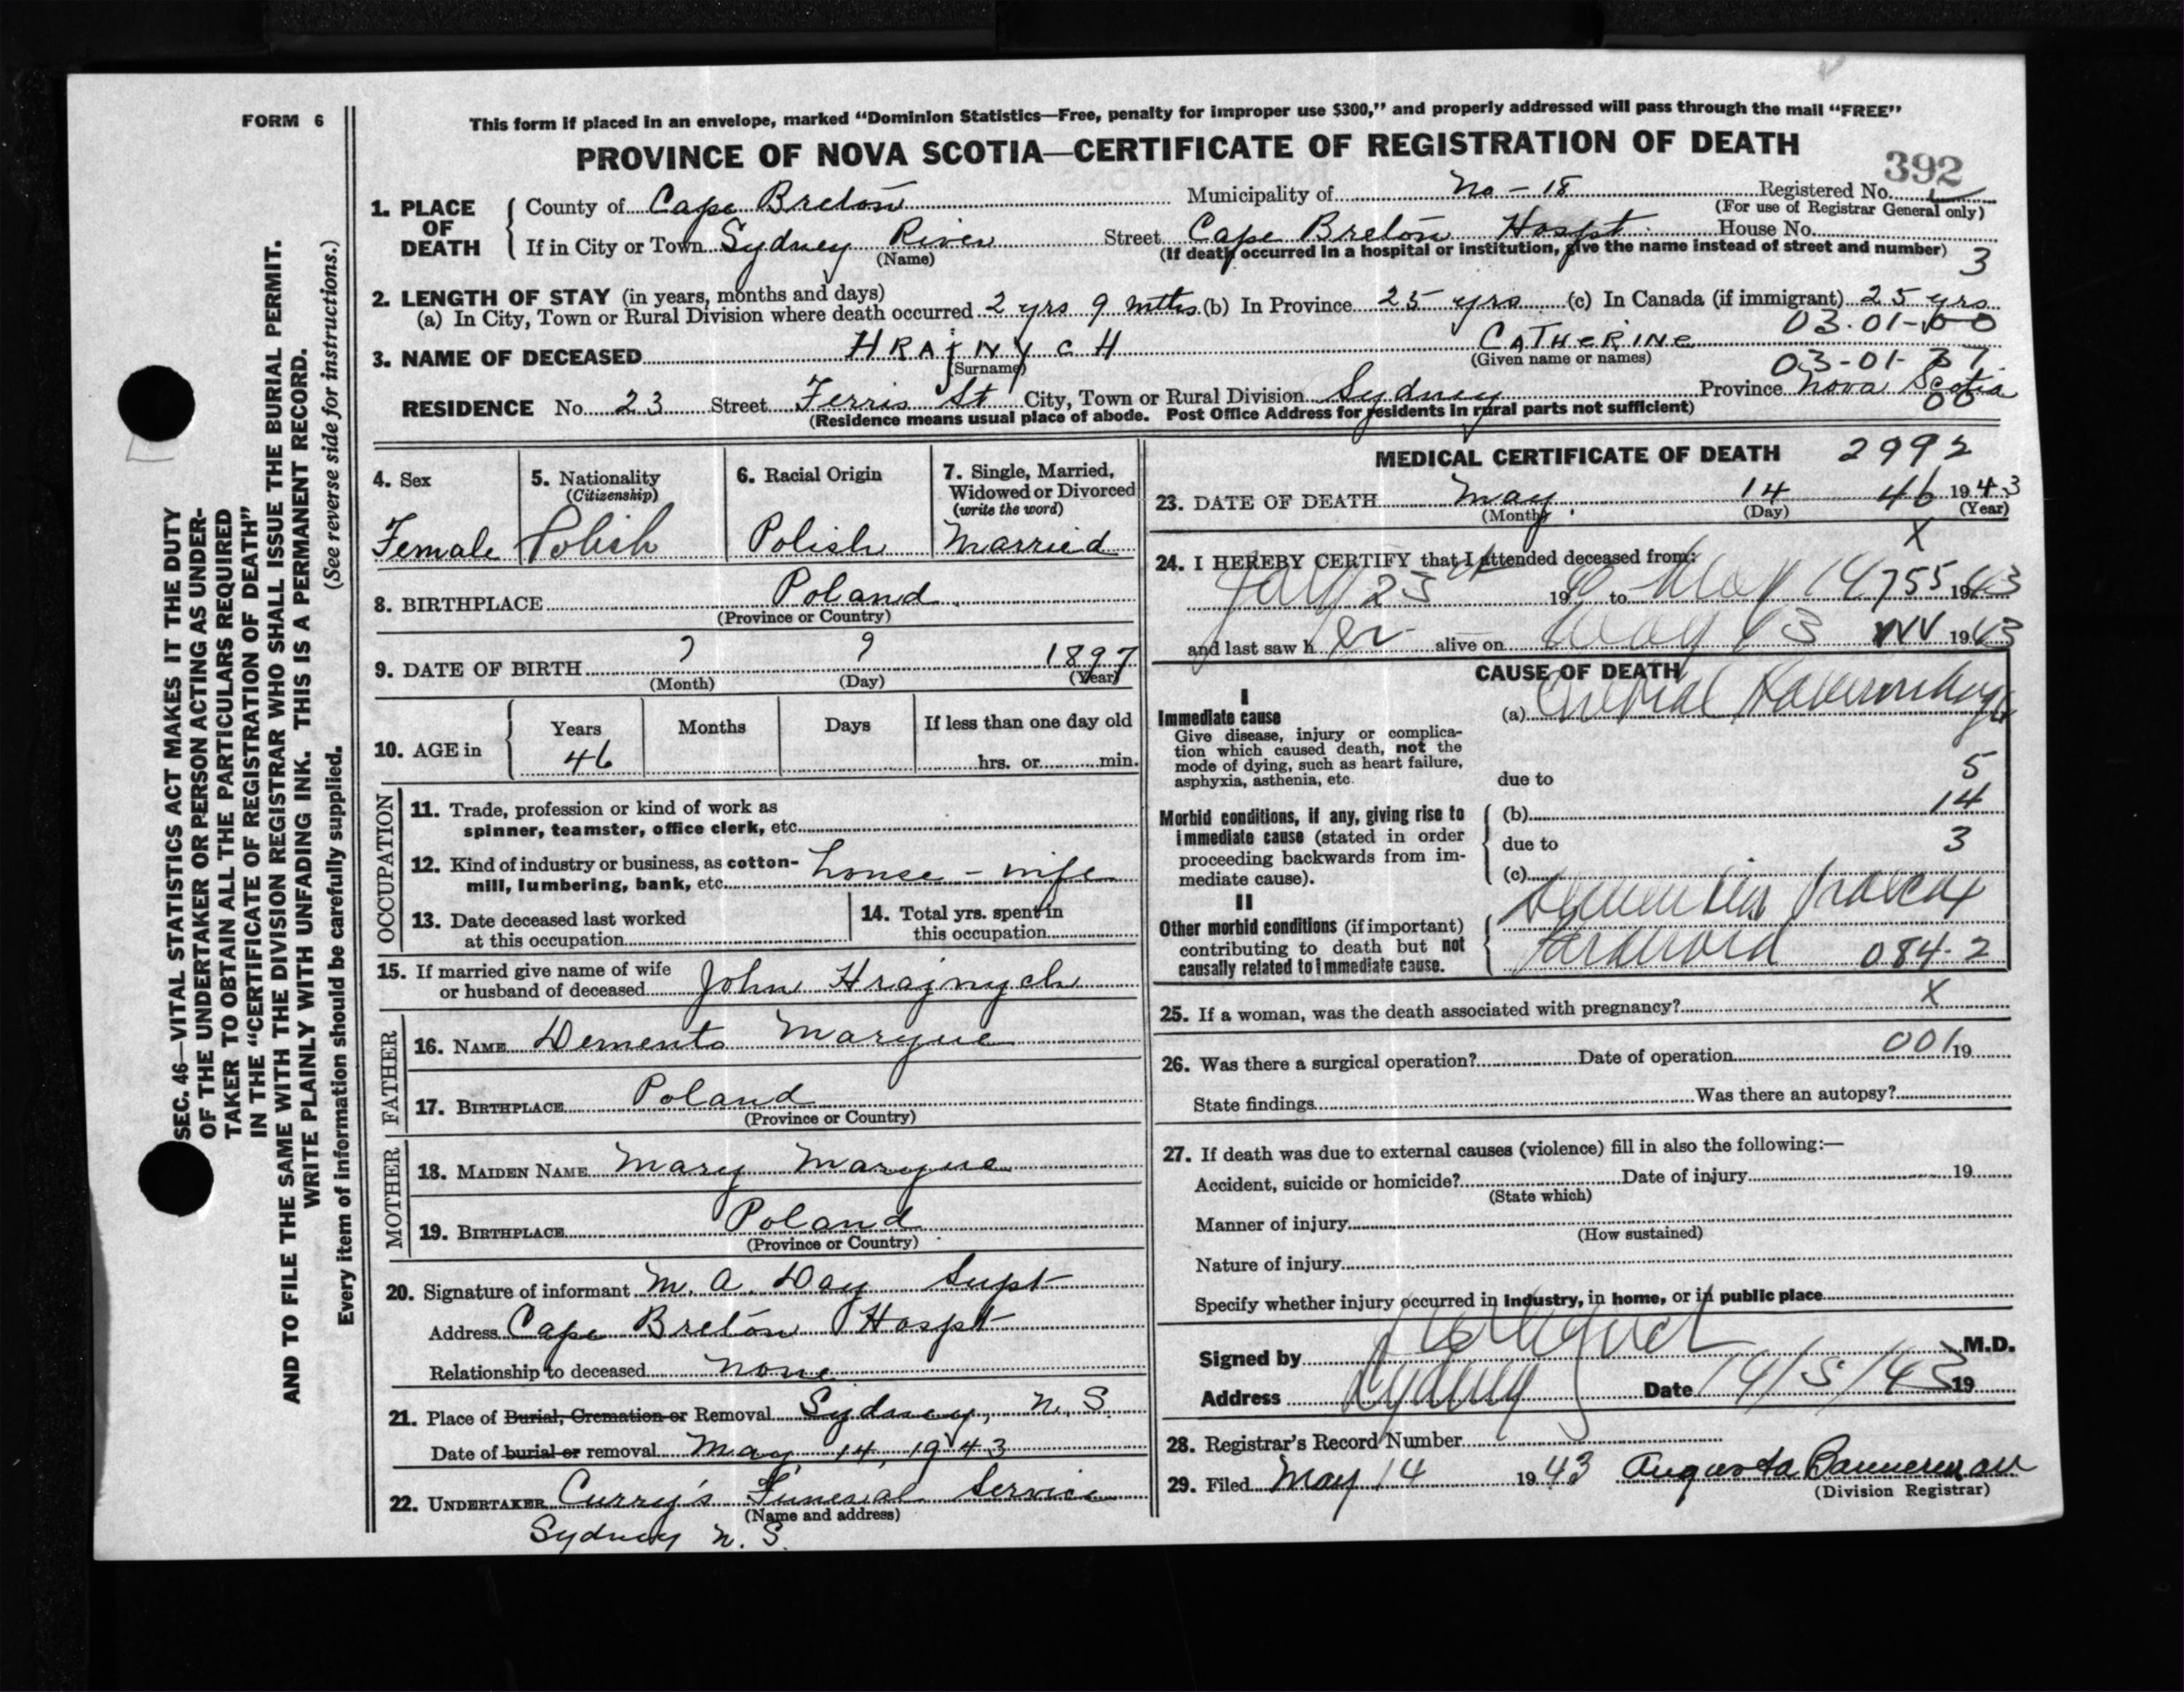 FORM 6
This form if placed in an envelope, marked “Dominion Statistics—Free, penalty for improper use $300,” and properly addressed will pass through the mail “FREE”
PROVINCE OF NOVA SCOTIA—CERTIFICATE OF REGISTRATION OF DEATH
392
1. PLACE OF DEATH
County of Cape Breton Municipality of No - 18 Registered No.
(For use of Registrar General only)
If in City or Town Sydney River Street Cape Breton Hospt. House No.
(Name) (If death occurred in a hospital or institution, give the name instead of street and number)
3
2. LENGTH OF STAY (in years, months and days)
(a) In City, Town or Rural Division where death occurred 2 yrs 9 mths (b) In Province 25 yrs (c) In Canada (if immigrant) 25 yrs
03-01-00
3. NAME OF DECEASED HRAJNYCH CATHERINE
(Surname) (Given name or names)
03-01-37
RESIDENCE No. 23 Street Ferris St City, Town or Rural Division Sydney Province Nova Scotia
(Residence means usual place of abode. Post Office Address for residents in rural parts not sufficient)
00
4. Sex
Female
5. Nationality
(Citizenship)
Polish
6. Racial Origin
Polish
7. Single, Married,
Widowed or Divorced
(write the word)
Married
8. BIRTHPLACE Poland
(Province or Country)
9. DATE OF BIRTH ? ? 1897
(Month) (Day) (Year)
10. AGE in
Years Months Days If less than one day old
46 hrs. or min.
OCCUPATION
11. Trade, profession or kind of work as
spinner, teamster, office clerk, etc.
12. Kind of industry or business, as cotton-
mill, lumbering, bank, etc. house-wife
13. Date deceased last worked
at this occupation
14. Total yrs. spent in
this occupation
15. If married give name of wife
or husband of deceased John Hrajnych
FATHER
16. NAME Demento Marque
17. BIRTHPLACE Poland
(Province or Country)
MOTHER
18. MAIDEN NAME Mary Marque
19. BIRTHPLACE Poland
(Province or Country)
20. Signature of informant M. A. Day Supt
Address Cape Breton Hospt
Relationship to deceased none
21. Place of Burial, Cremation or Removal Sydney, N.S.
Date of burial or removal May 14, 1943
22. UNDERTAKER Curry's Funeral Service
(Name and address)
Sydney N.S.
MEDICAL CERTIFICATE OF DEATH 2992
23. DATE OF DEATH May 14 46 1943
(Month) (Day) (Year)
X
24. I HEREBY CERTIFY that I attended deceased from:
23 19 to May 14 755 1943
and last saw her alive on May 13 1943
CAUSE OF DEATH
I
Immediate cause
Give disease, injury or complica-
tion which caused death, not the
mode of dying, such as heart failure,
asphyxia, asthenia, etc.
(a) Cerebral Haemorrhage
due to 5
Morbid conditions, if any, giving rise to
immediate cause (stated in order
proceeding backwards from im-
mediate cause).
(b) 14
due to 3
(c)
II
Other morbid conditions (if important)
contributing to death but not
causally related to immediate cause.
Dementia Praecox
Paranoid 084-2
25. If a woman, was the death associated with pregnancy? X
26. Was there a surgical operation? Date of operation 001 19
State findings Was there an autopsy?
27. If death was due to external causes (violence) fill in also the following:—
Accident, suicide or homicide? Date of injury 19
(State which)
Manner of injury
(How sustained)
Nature of injury
Specify whether injury occurred in Industry, in home, or in public place
Signed by M.D.
Address Sydney Date 14/5/43 19
28. Registrar's Record Number
29. Filed May 14 1943 Augusta Bannerman
(Division Registrar)
SEC. 46—VITAL STATISTICS ACT MAKES IT THE DUTY
OF THE UNDERTAKER OR PERSON ACTING AS UNDER-
TAKER TO OBTAIN ALL THE PARTICULARS REQUIRED
IN THE “CERTIFICATE OF REGISTRATION OF DEATH”
AND TO FILE THE SAME WITH THE DIVISION REGISTRAR WHO SHALL ISSUE THE BURIAL PERMIT.
WRITE PLAINLY WITH UNFADING INK. THIS IS A PERMANENT RECORD.
Every item of information should be carefully supplied. (See reverse side for instructions.)